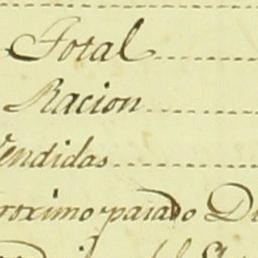 Total
Racion
Vendidas
proximo pasado D